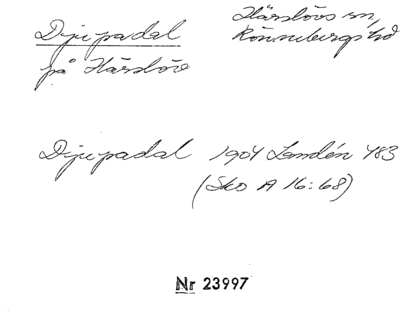 Djupadal
på Härslöv
Härslövs sn,
Rönnebergs hd
Djupadal 1904 Landén 483
(Sko A 16:68)
Nr 23997